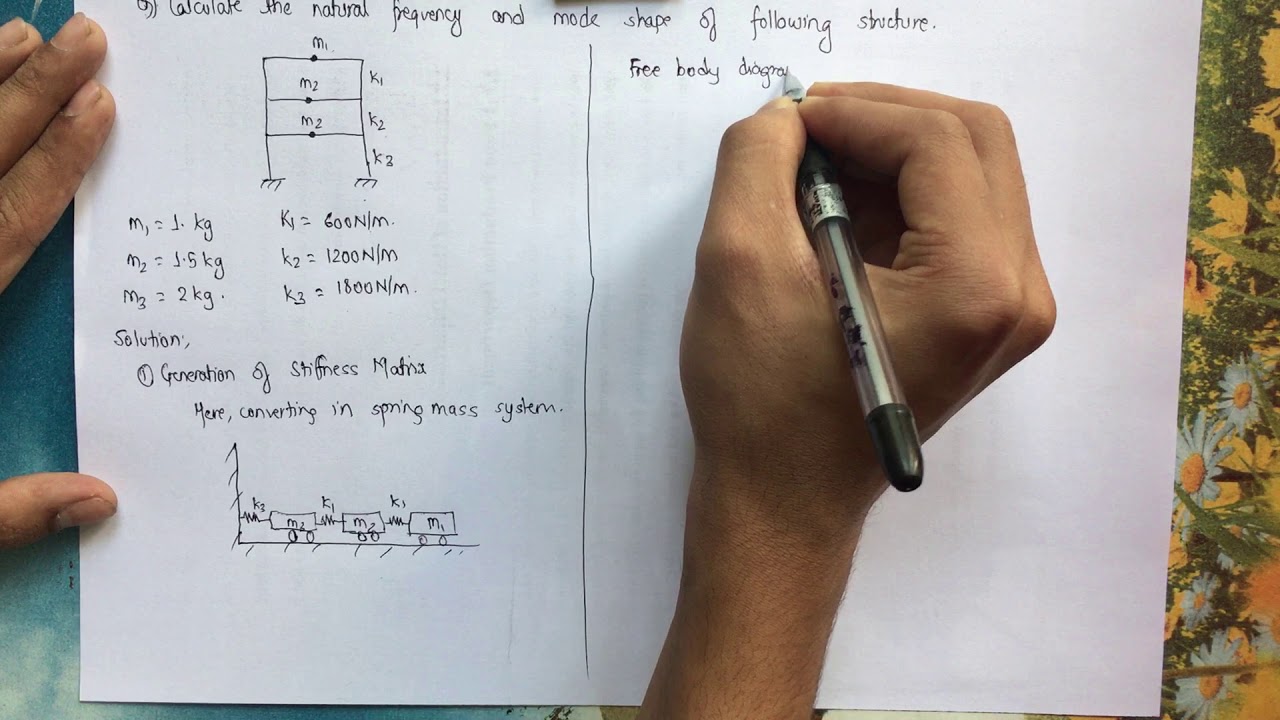 Q) Calculate the natural frequency and mode shape of following structure.
m1
m2 k1
m2 k2
k3
m1 = 1. kg K1 = 600N/m.
m2 = 1.5 kg k2 = 1200N/m
m3 = 2 kg. k3 = 1800N/m.
Solution;,
① Generation of Stiffness Matrix
Here, converting in spring mass system.
k3 k1 k1
m2 m2 m1
Free body diagra